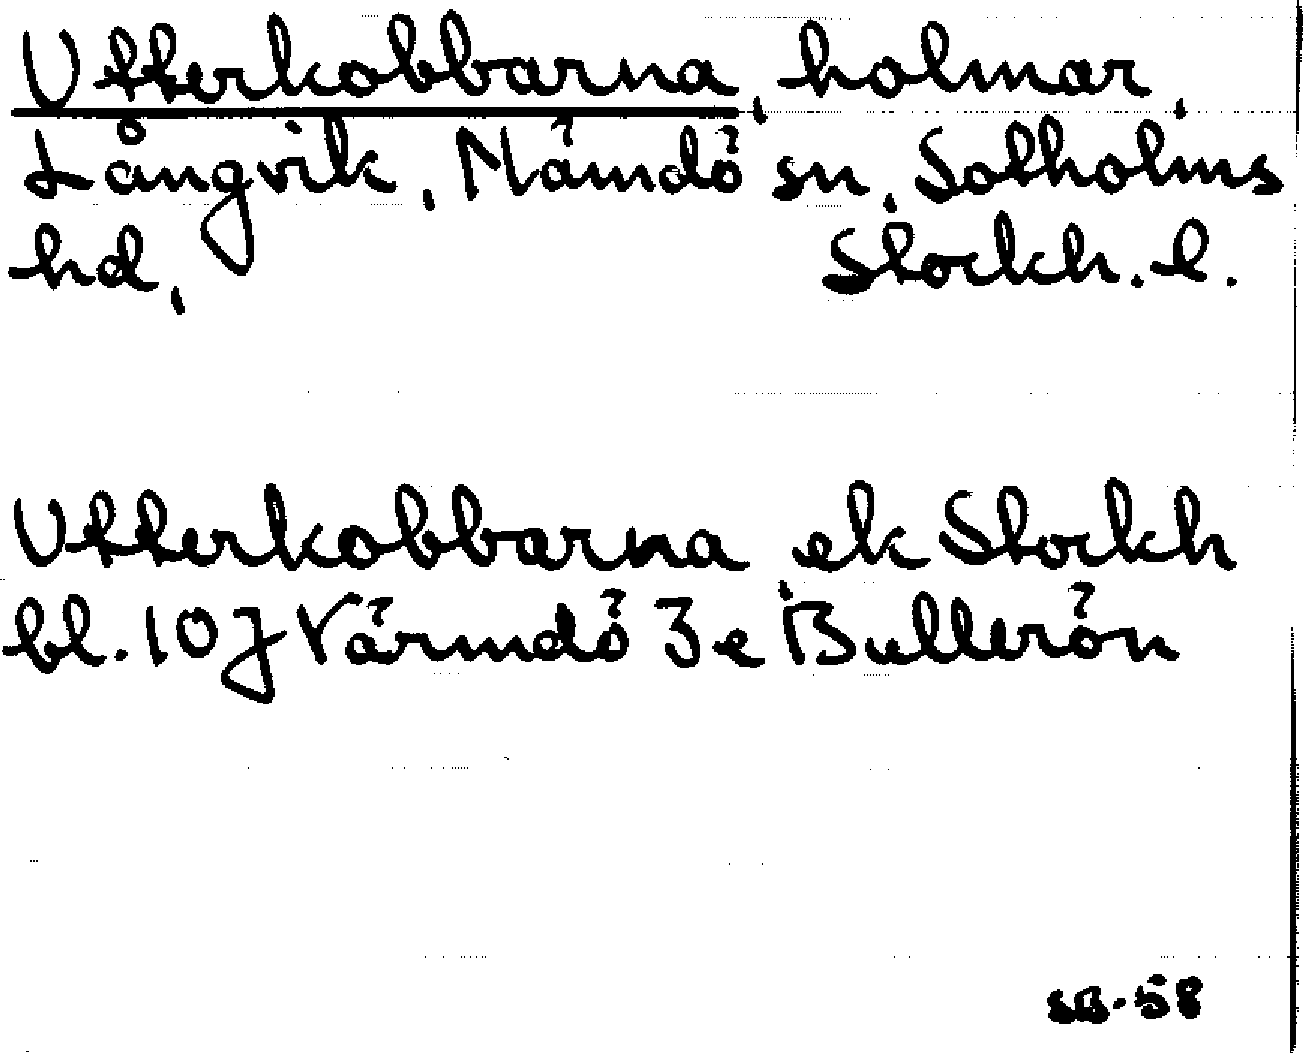 Utterkobbarna, holmar,
Långvik, Nämdö sn, Sotholms
hd, Stockh. l.
Utterkobbarna, ek Stockh
bl. 10J Värmdö 3e Bullerön
SB-58